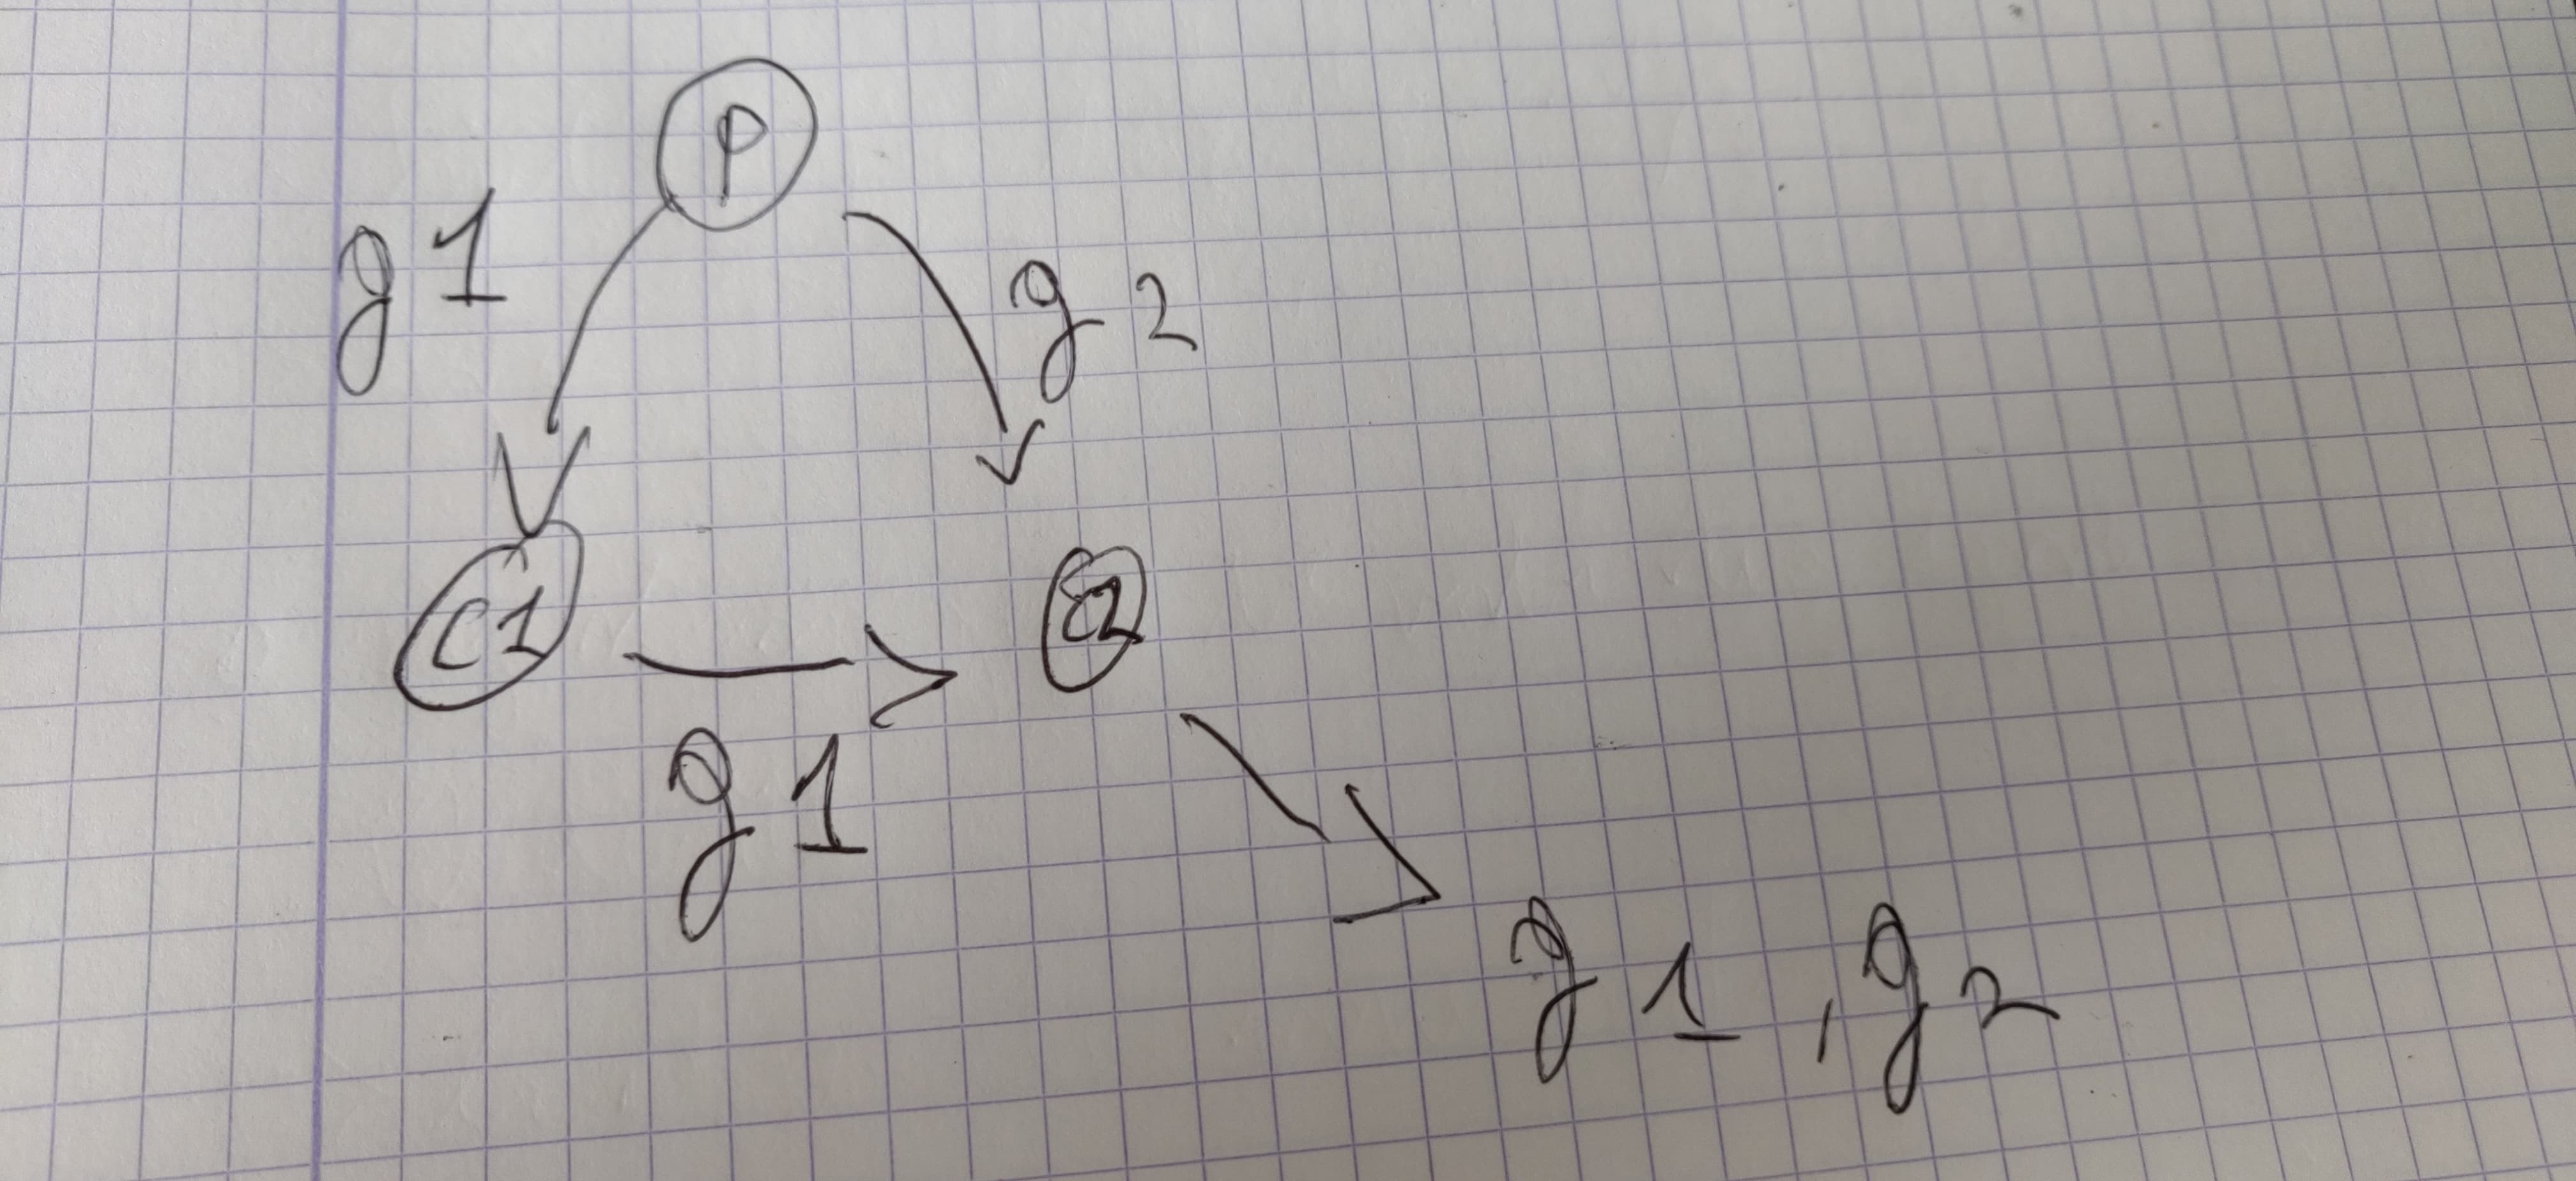 P
g1
g2
C1
C2
g1
g1, g2